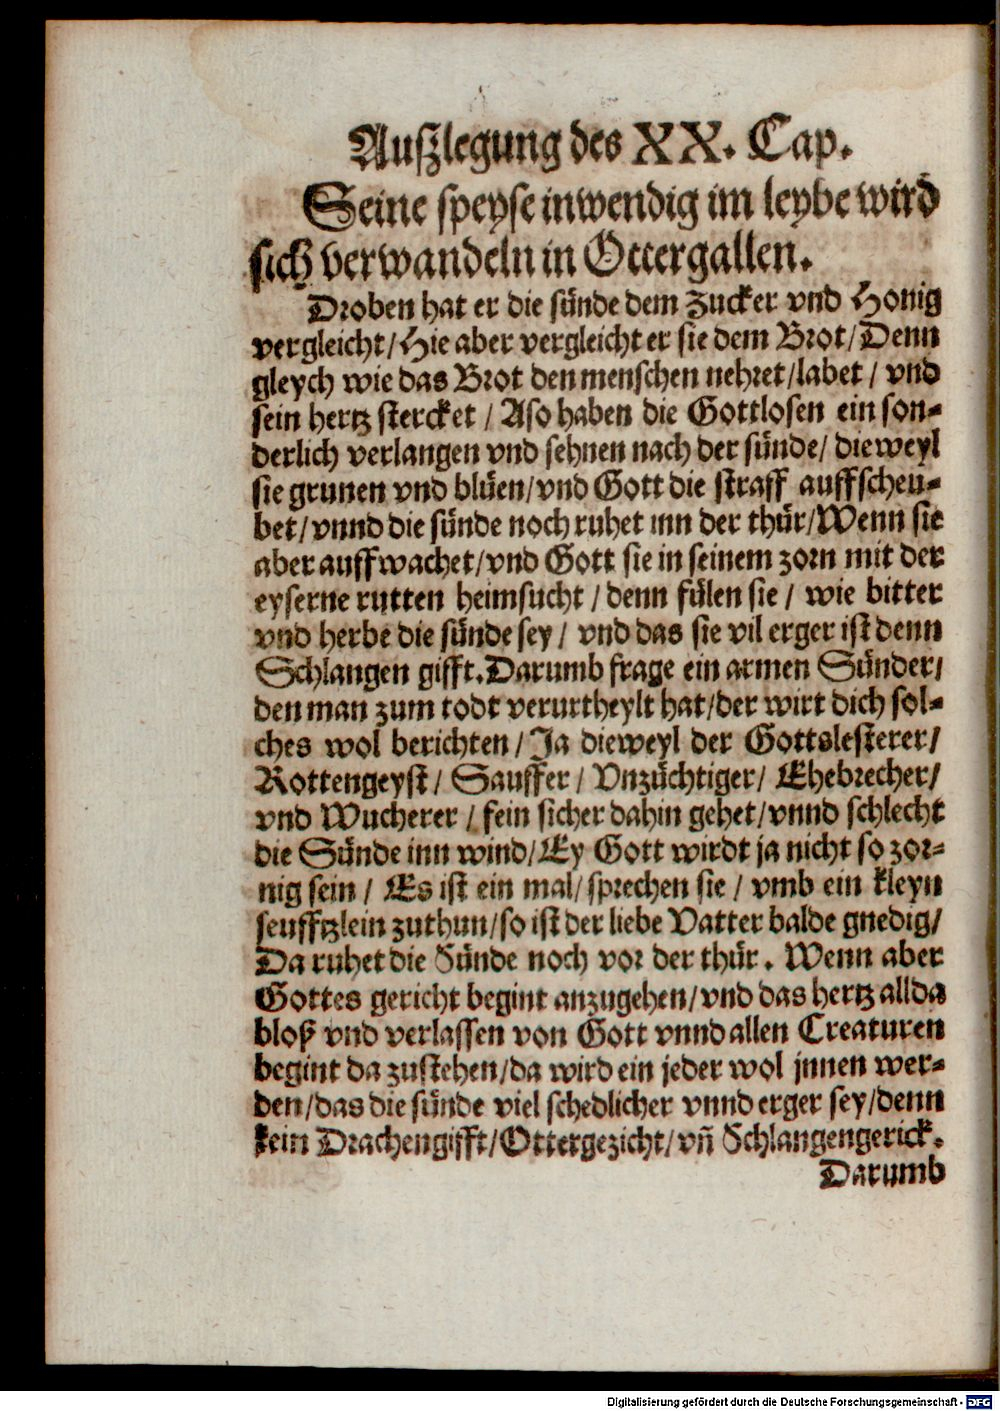 Auſzlegung des XX. Cap.
Seine ſpeyſe inwendig im leybe wird
ſich verwandeln in Ottergallen.
Droben hat er die ſünde dem Zucker vnd Honig
vergleicht/Hie aber vergleicht er ſie dem Brot/Denn
gleych wie das Brot den menſchen nehret/labet / vnd
ſein hertz ſtercket / Aſo haben die Gottloſen ein ſon-
derlich verlangen vnd ſehnen nach der ſünde/ dieweyl
ſie grunen vnd blüen/vnd Gott die ſtraff auffſcheu-
bet/vnnd die ſünde noch ruhet inn der thür/Wenn ſie
aber auffwachet/vnd Gott ſie in ſeinem zorn mit der
eyſerne rutten heimſucht / denn fülen ſie / wie bitter
vnd herbe die ſünde ſey / vnd das ſie vil erger iſt denn
Schlangen gifft.Darumb frage ein armen Sünder/
den man zum todt verurtheylt hat/der wirt dich ſol-
ches wol berichten / Ja dieweyl der Gottsleſterer/
Rottengeyſt/ Sauffer/ Vnzüchtiger/ Ehebrecher/
vnd Wucherer / fein ſicher dahin gehet/vnnd ſchlecht
die Sünde inn wind/Ey Gott wirdt ja nicht ſo zor-
nig ſein / Es iſt ein mal/ ſprechen ſie / vmb ein kleyn
ſeufftzlein zuthun/ſo iſt der liebe Vatter balde gnedig/
Da ruhet die Sünde noch vor der thür. Wenn aber
Gottes gericht begint anzugehen/vnd das hertz allda
bloß vnd verlaſſen von Gott vnnd allen Creaturen
begint da zuſtehen/da wird ein jeder wol jnnen wer-
den/das die ſünde viel ſchedlicher vnnd erger ſey/denn
kein Drachengifft/Ottergezicht/vñ Schlangengerick.
Darumb
Digitalisierung gefördert durch die Deutsche Forschungsgemeinschaft - DFG